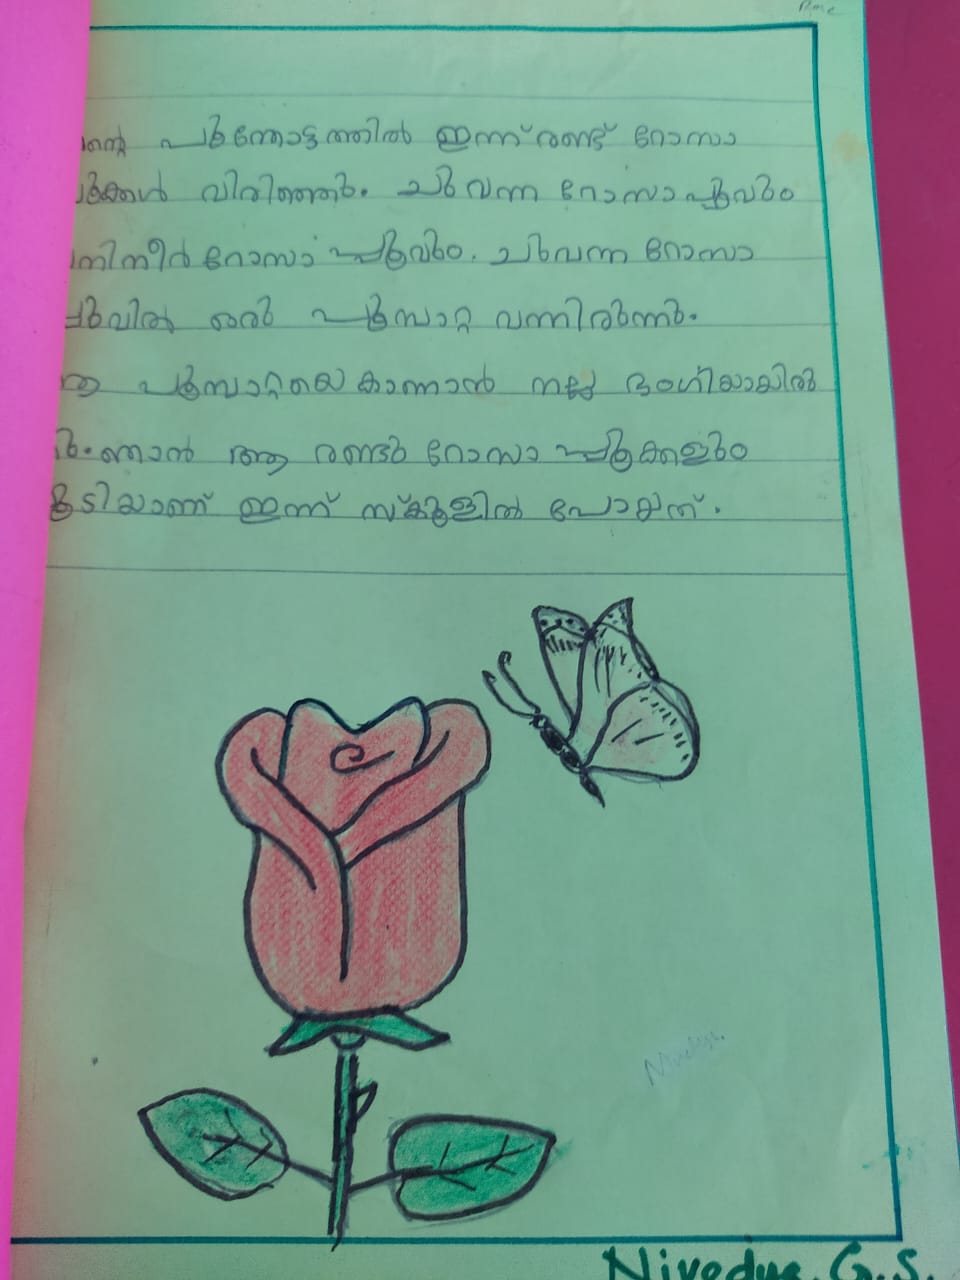 ന്റെ പൂന്തോട്ടത്തിൽ ഇന്ന് രണ്ട് റോസാ
പൂക്കൾ വിരിഞ്ഞു. ചുവന്ന റോസാപ്പൂവും
നിനീർ റോസാപ്പൂവും. ചുവന്ന റോസാ
പൂവിൽ ഒരു പൂമ്പാറ്റ വന്നിരുന്നു.
ആ പൂമ്പാറ്റയെ കാണാൻ നല്ല ഭംഗിയായിരു
ഞാൻ ആ രണ്ടു റോസാപ്പൂക്കളും
കൂടിയാണ് ഇന്ന് സ്കൂളിൽ പോയത്.
Nivedya. G.S.